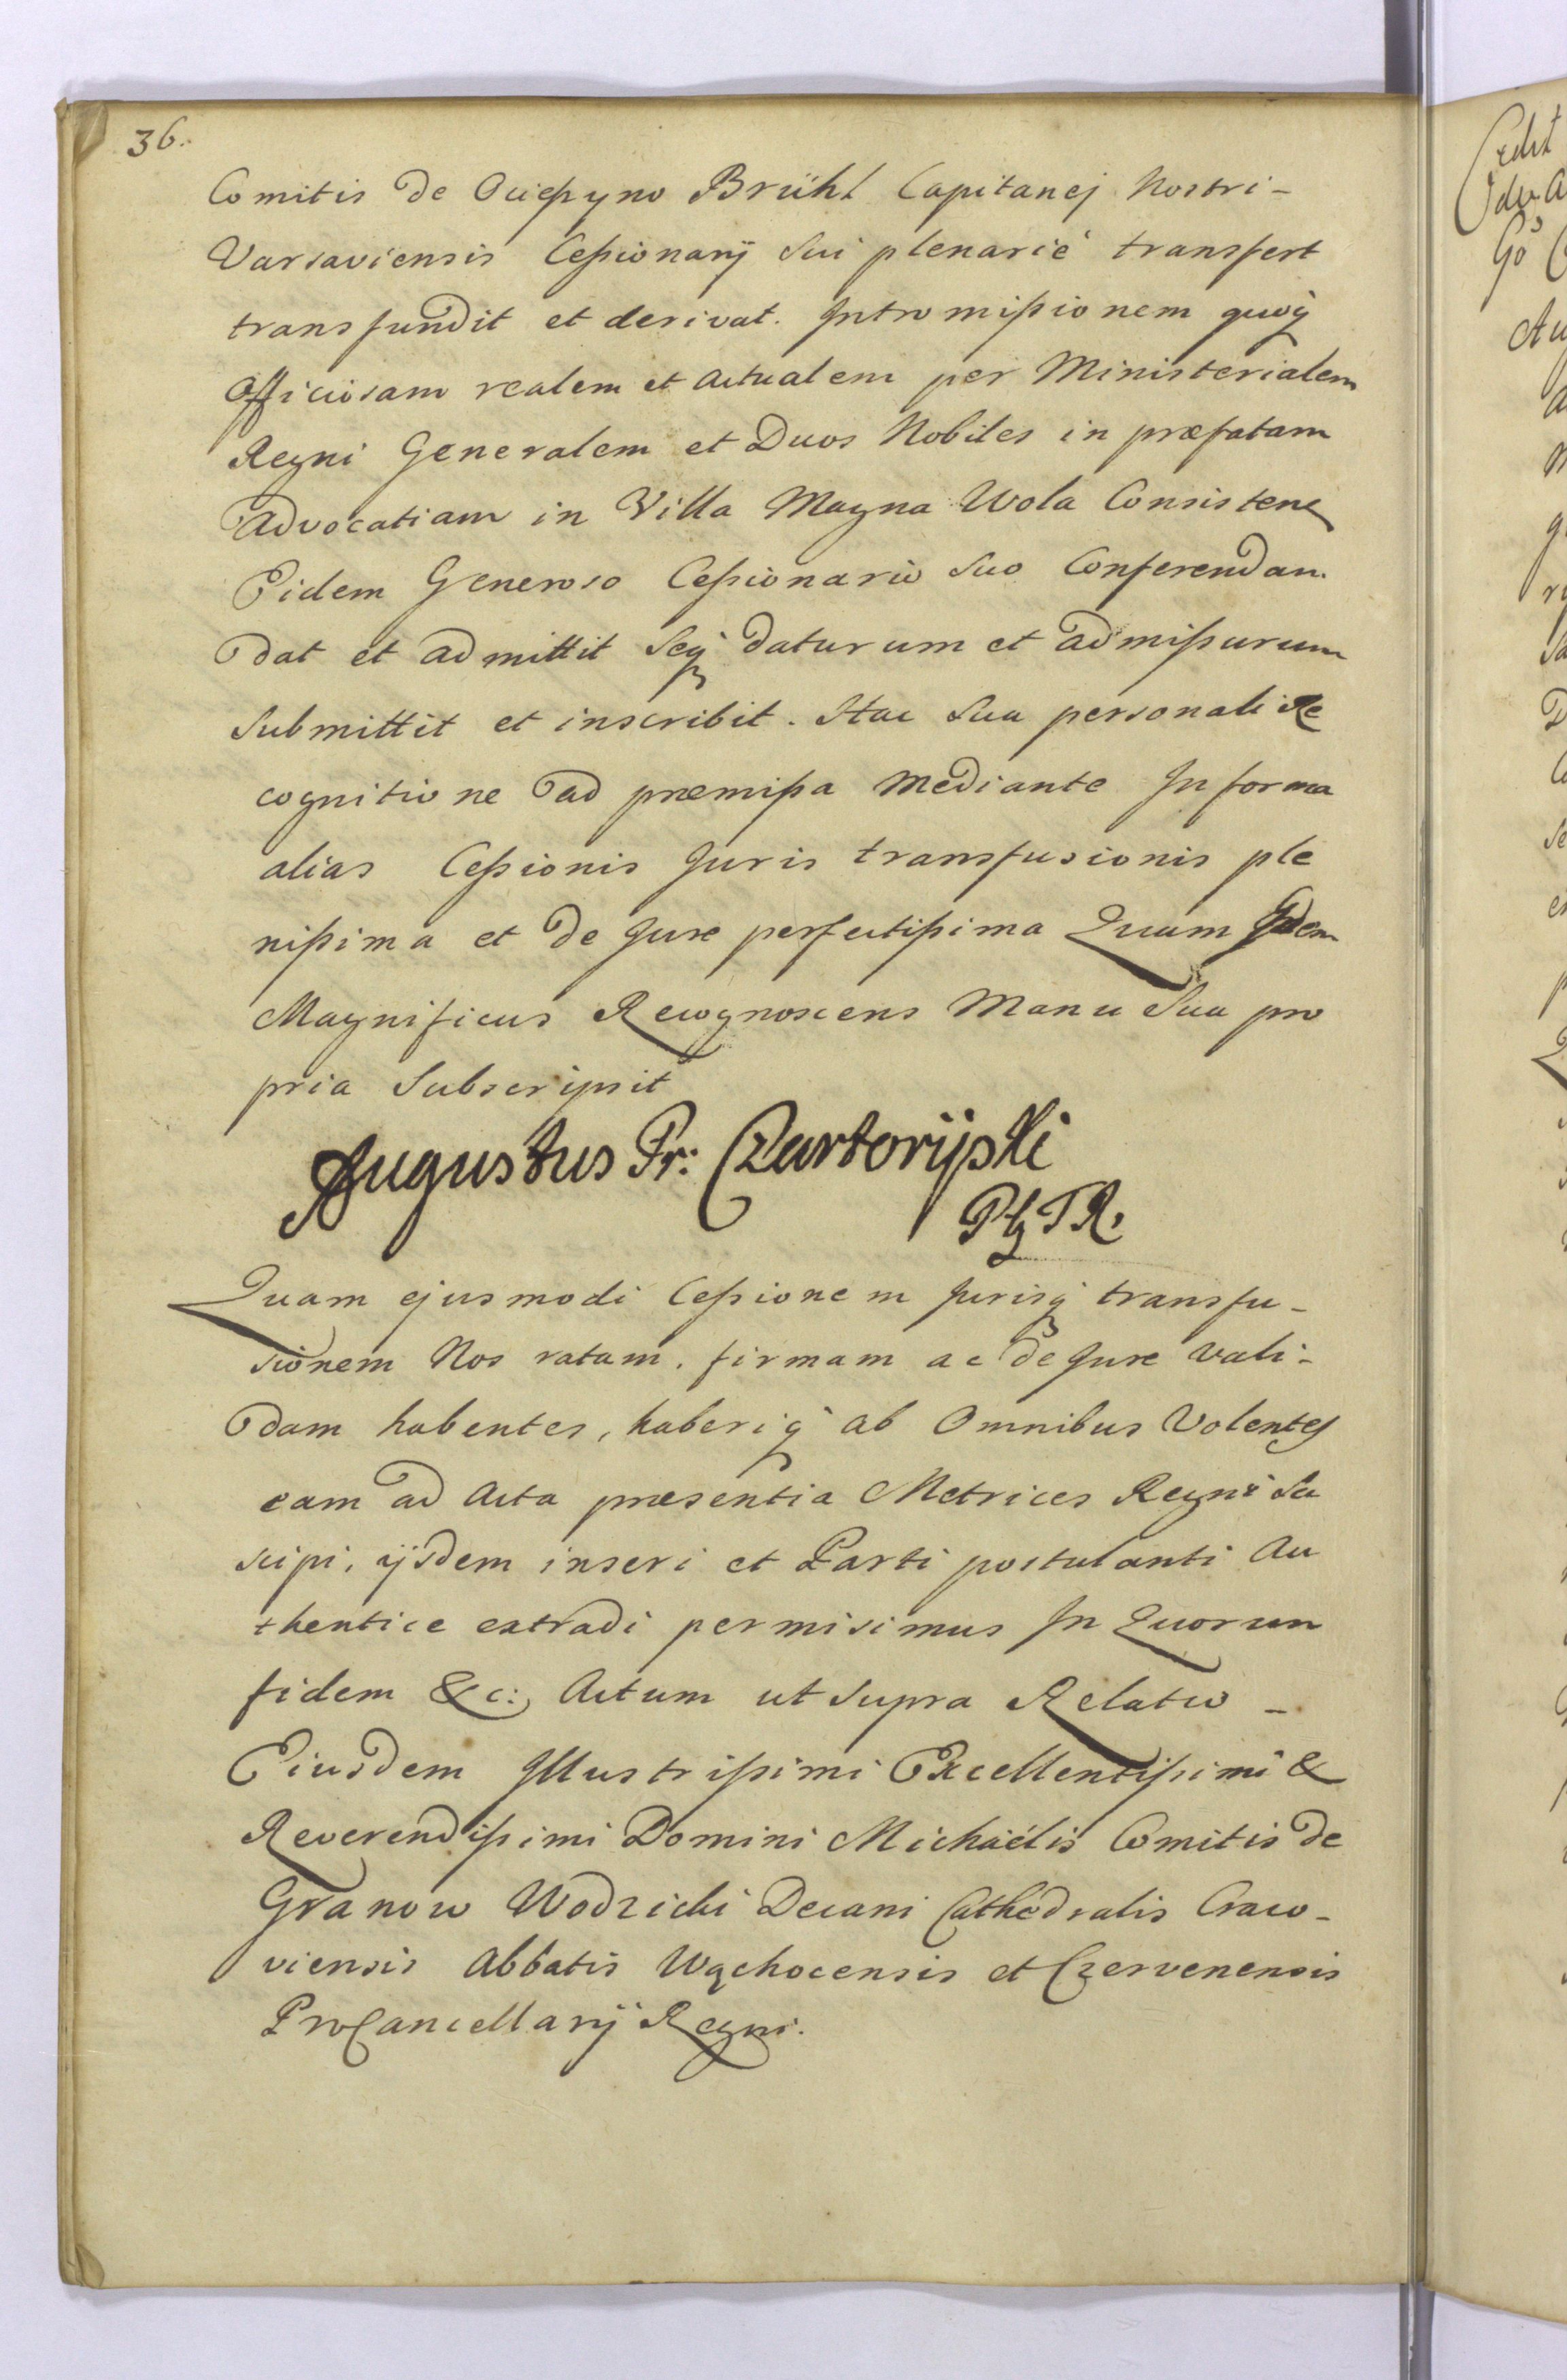 36.
Comitis de Ociessyno Brühl Capitanej Nostri-
Varsaviensis Cessionarij Sui plenariè transfert
transfundit et derivat. Intromissionem quoq
Officiosam realem et Actualem per Ministerialem
Regni Generalem et Duos Nobiles in præfatam
Advocatiam in Villa Magna Wola Consisten
Eidem Generoso Cessionario Suo Conferendam
dat et admittit Seq daturum et admissurum
Submittit et inscribit. Hac Sua personali Re
cognitione ad præmissa Mediante In forma
alias Cessionis Juris transfusionis ple
nissima et de Jure perfectissima Quam Idem
Magnificus Recognoscens Manu Sua pro
pria Subscripsit
Augustus Pr: Czartoryski
Quam ejusmodi Cessionem Jurisq transfu-
sionem Nos ratam, firmam ac de Jure vali-
dam habentes, haberiq ab Omnibus Volentes
eam ad Acta præsentia Metrices Regni Su
scipi, ijsdem inseri et Parti postulanti Au
thentice extradi permisimus In Quorum
fidem &c: Actum ut Supra Relatio -
Eiusdem Illustrissimi Excellentissimi &
Reverendissimi Domini Michaëlis Comitis de
Granow Wodzicki Decani Cathedralis Craco-
viensis Abbatis Wąchocensis et Czervenensis
ProCancellarij Regni.